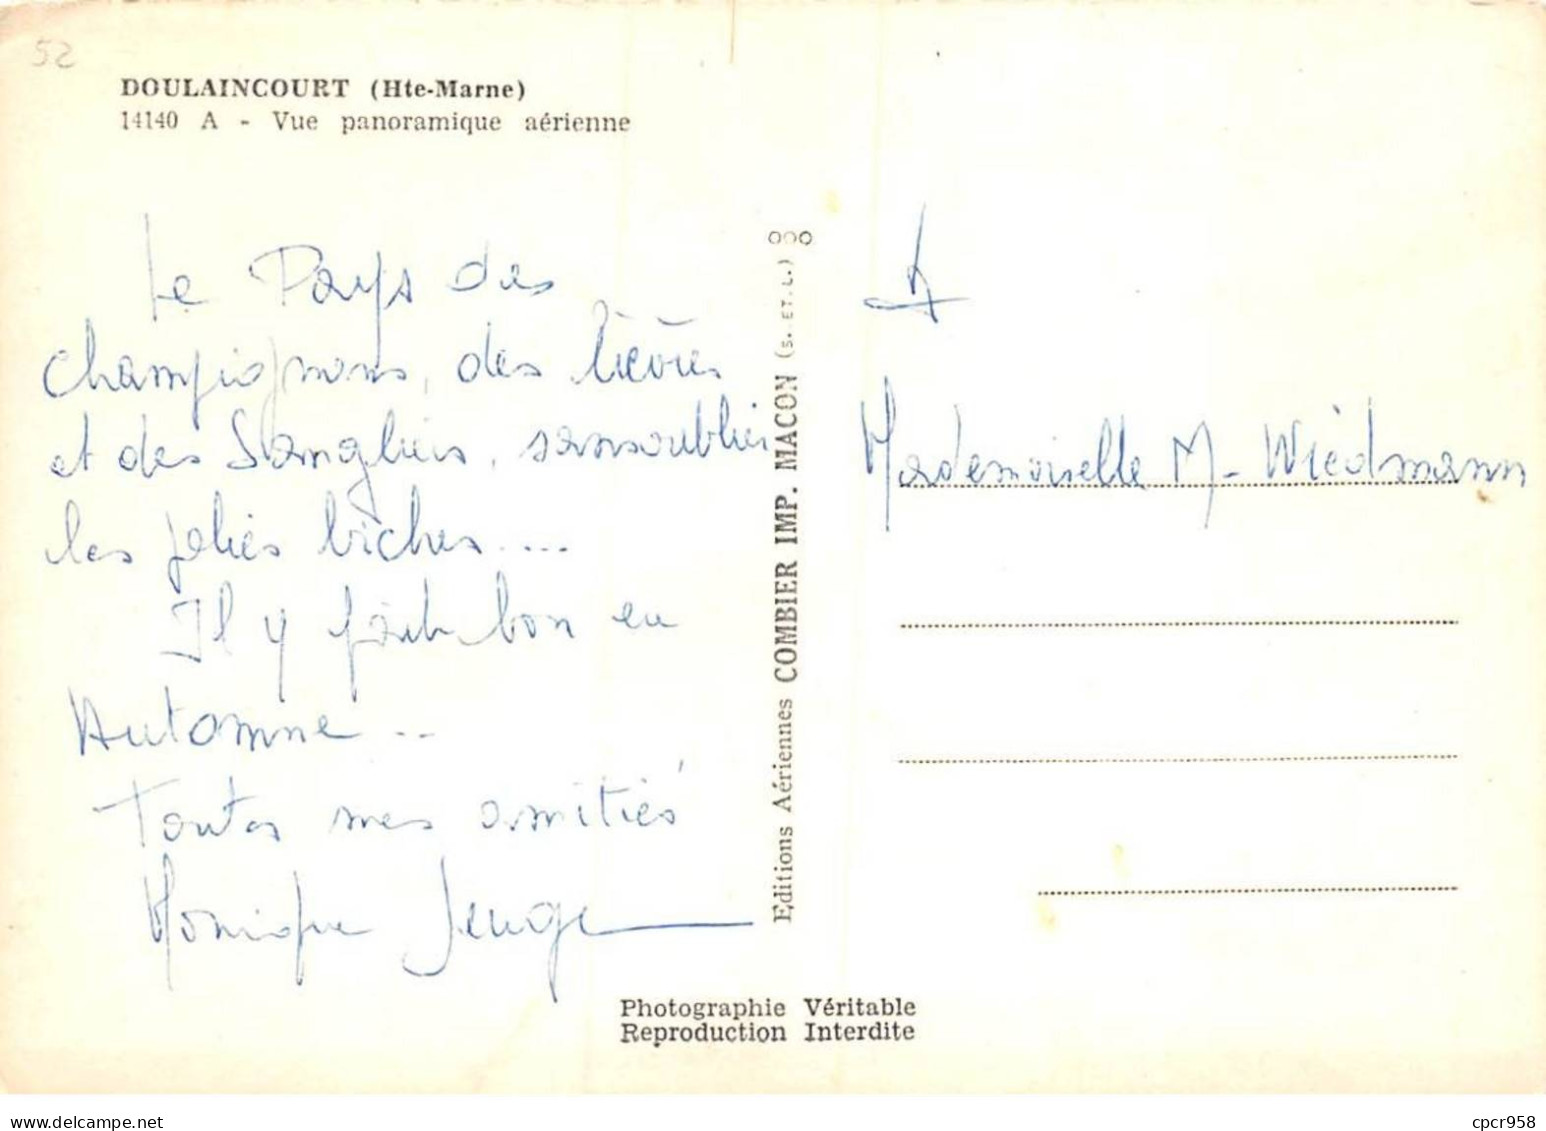 52
DOULAINCOURT (Hte-Marne)
14140 A - Vue panoramique aérienne
Le Pays des
champignons, des lièvres
et des Sangliers, sans oublier
les jolies biches....
Il y fait bon en
Automne...
Toutes mes amitiés
Monique
Editions Aériennes COMBIER IMP. MACON (S. ET. L.)
A
Mademoiselle M. Wiédmann
Photographie Véritable
Reproduction Interdite
www.delcampe.net
cpcr958